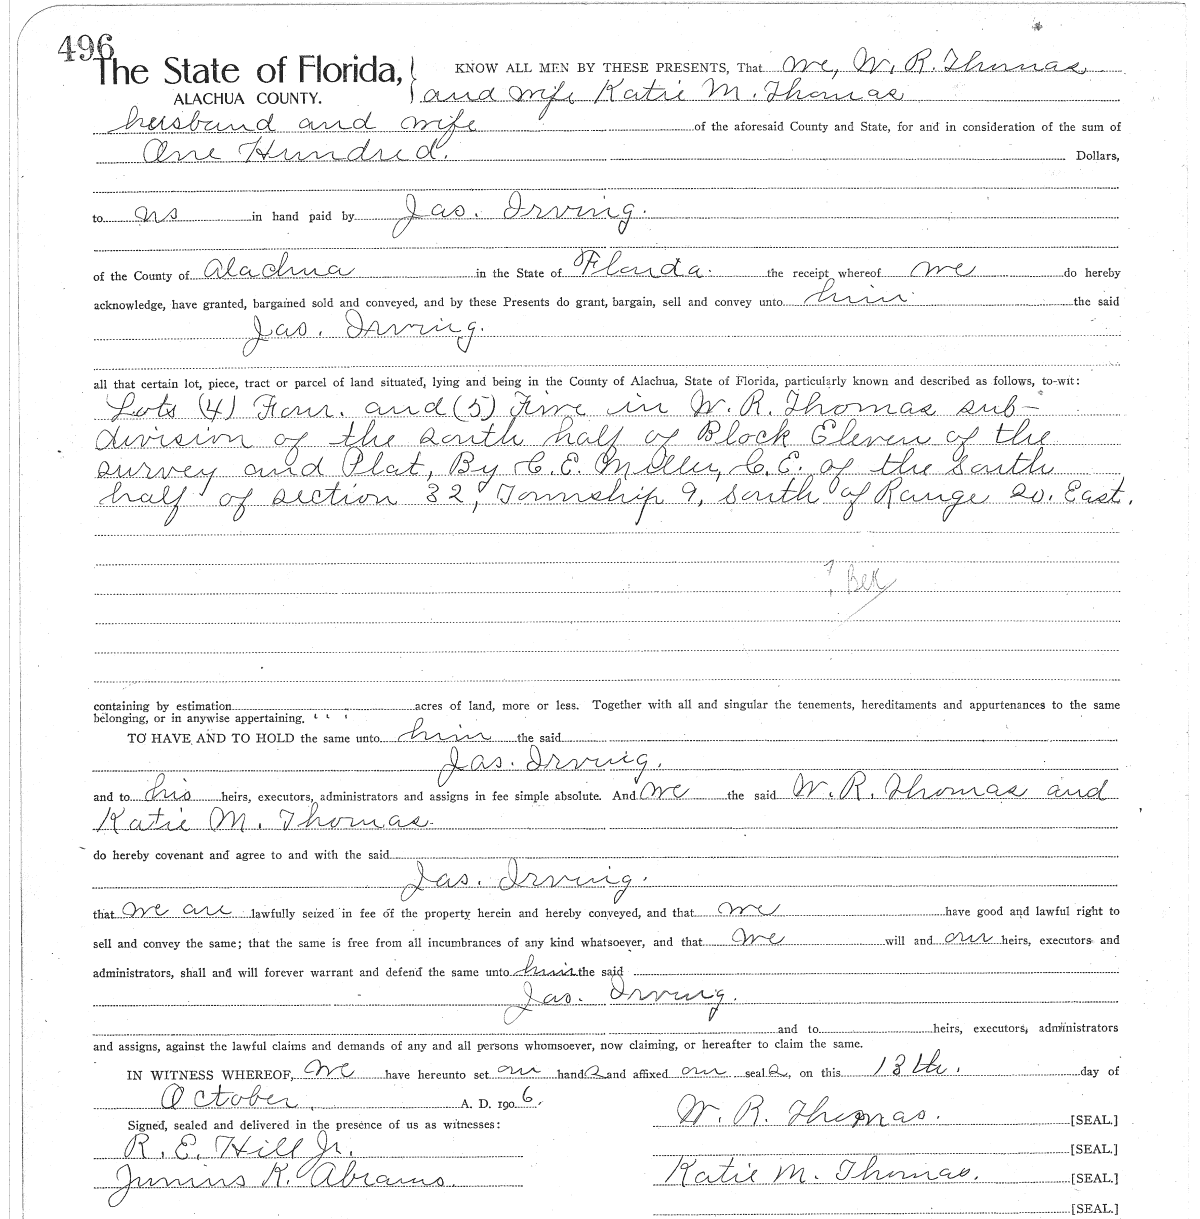 496
The State of Florida, KNOW ALL MEN BY THESE PRESENTS, That we, W. R. Thomas
ALACHUA COUNTY. and wife Katie M. Thomas
husband and wife of the aforesaid County and State, for and in consideration of the sum of
One Hundred. Dollars,
to us in hand paid by Jas. Irving.
of the County of Alachua in the State of Florida. the receipt whereof we do hereby
acknowledge, have granted, bargained sold and conveyed, and by these Presents do grant, bargain, sell and convey unto him the said
Jas. Irving.
all that certain lot, piece, tract or parcel of land situated, lying and being in the County of Alachua, State of Florida, particularly known and described as follows, to-wit:
Lots (4) Four. and (5) Five in W. R. Thomas sub-
division of the south half of Block Eleven of the
survey and Plat, By C. E. Miller, C. E. of the South
half of section 32, Township 9, South of Range 20. East.
containing by estimation acres of land, more or less. Together with all and singular the tenements, hereditaments and appurtenances to the same
belonging, or in anywise appertaining.
TO HAVE AND TO HOLD the same unto him the said
Jas. Irving.
and to his heirs, executors, administrators and assigns in fee simple absolute. And we the said W. R. Thomas and
Katie M. Thomas.
do hereby covenant and agree to and with the said
Jas. Irving.
that we are lawfully seized in fee of the property herein and hereby conveyed, and that we have good and lawful right to
sell and convey the same; that the same is free from all incumbrances of any kind whatsoever, and that we will and our heirs, executors and
administrators, shall and will forever warrant and defend the same unto him the said
Jas. Irving.
and to heirs, executors, administrators
and assigns, against the lawful claims and demands of any and all persons whomsoever, now claiming, or hereafter to claim the same.
IN WITNESS WHEREOF, we have hereunto set our hands and affixed our seals, on this 13th. day of
October, A. D. 1906.
W. R. Thomas. [SEAL.]
Signed, sealed and delivered in the presence of us as witnesses:
R. E. Hill Jr. [SEAL.]
Junius K. Abrams. Katie M. Thomas. [SEAL.]
[SEAL.]